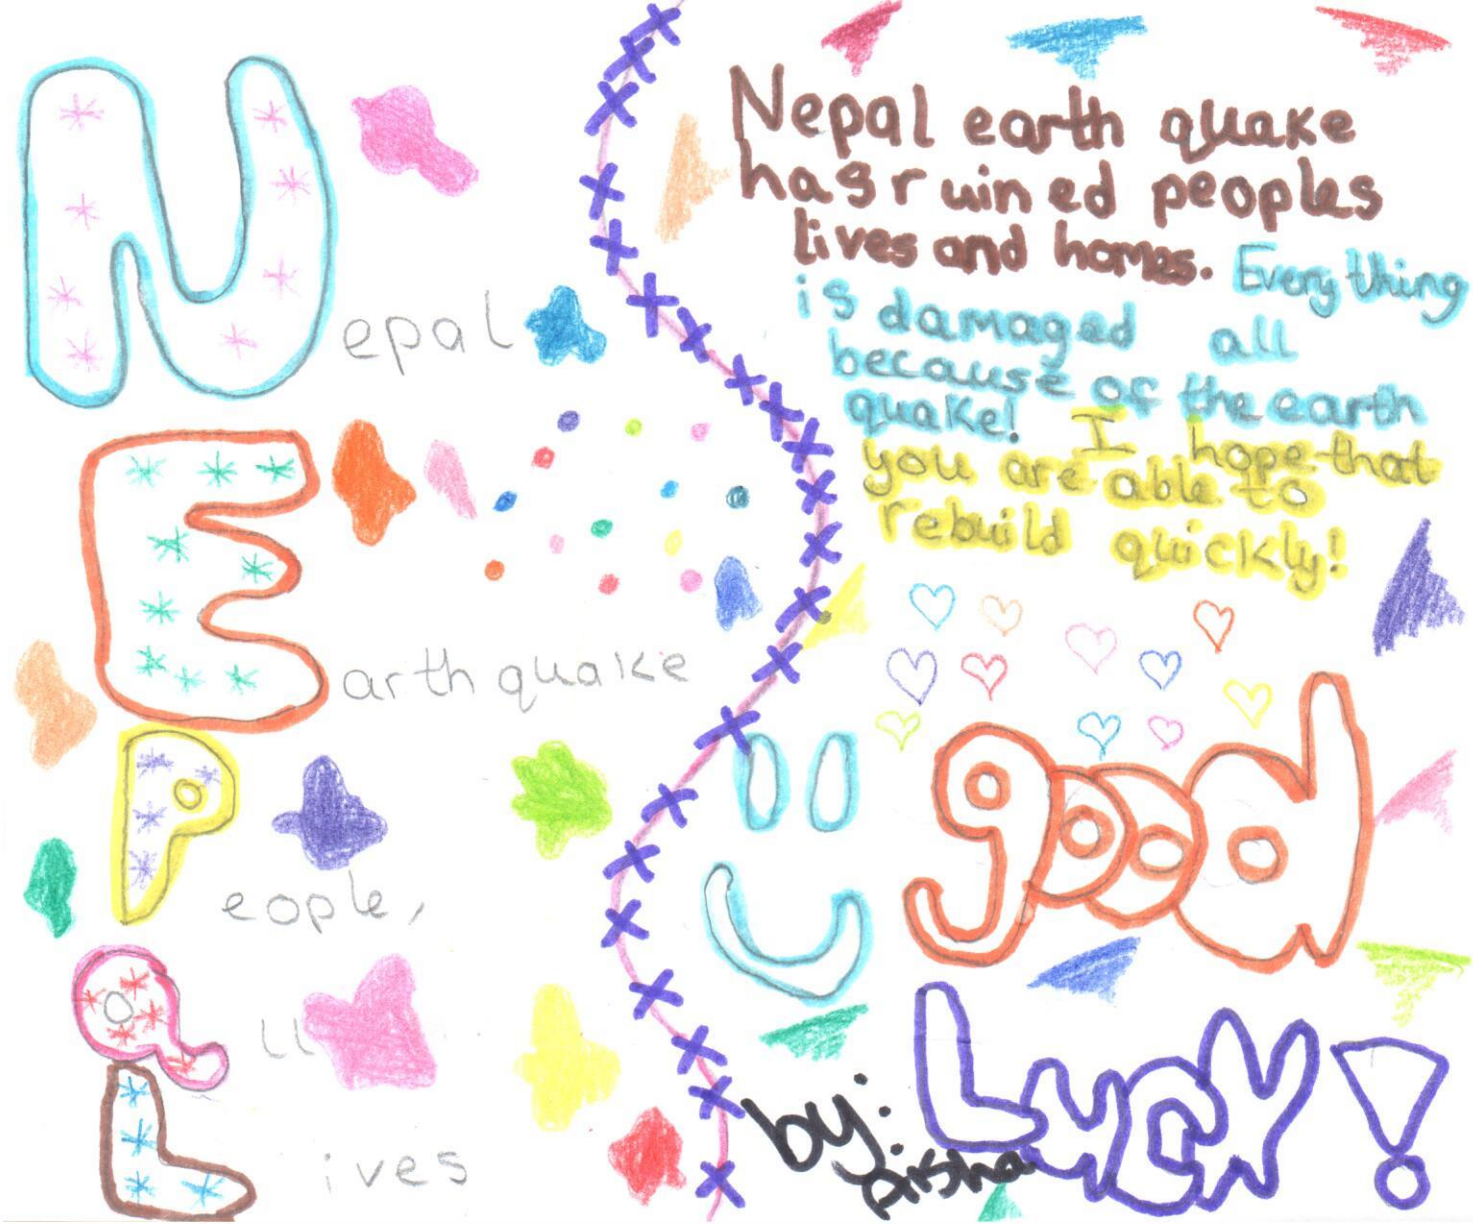 Nepal
Earth quake
People,
all
Lives
Nepal earth quake
has ruined peoples
lives and homes. Every thing
is damaged all
because of the earth
quake! I hope that
you are able to
rebuild quickly!
good
LUCK!
by:
Aisha